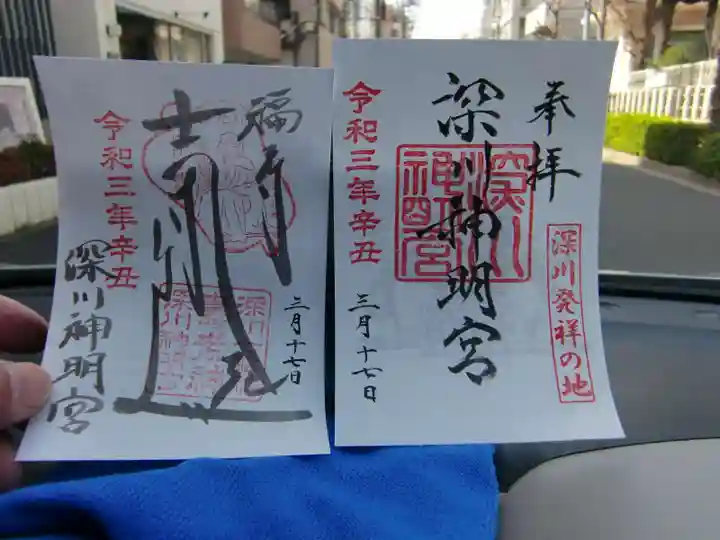 奉拝
深川発祥の地
深川神明宮
深川神明宮
令和三年辛丑
三月十七日
福
令和三年辛丑
三月十七日
深川神明宮